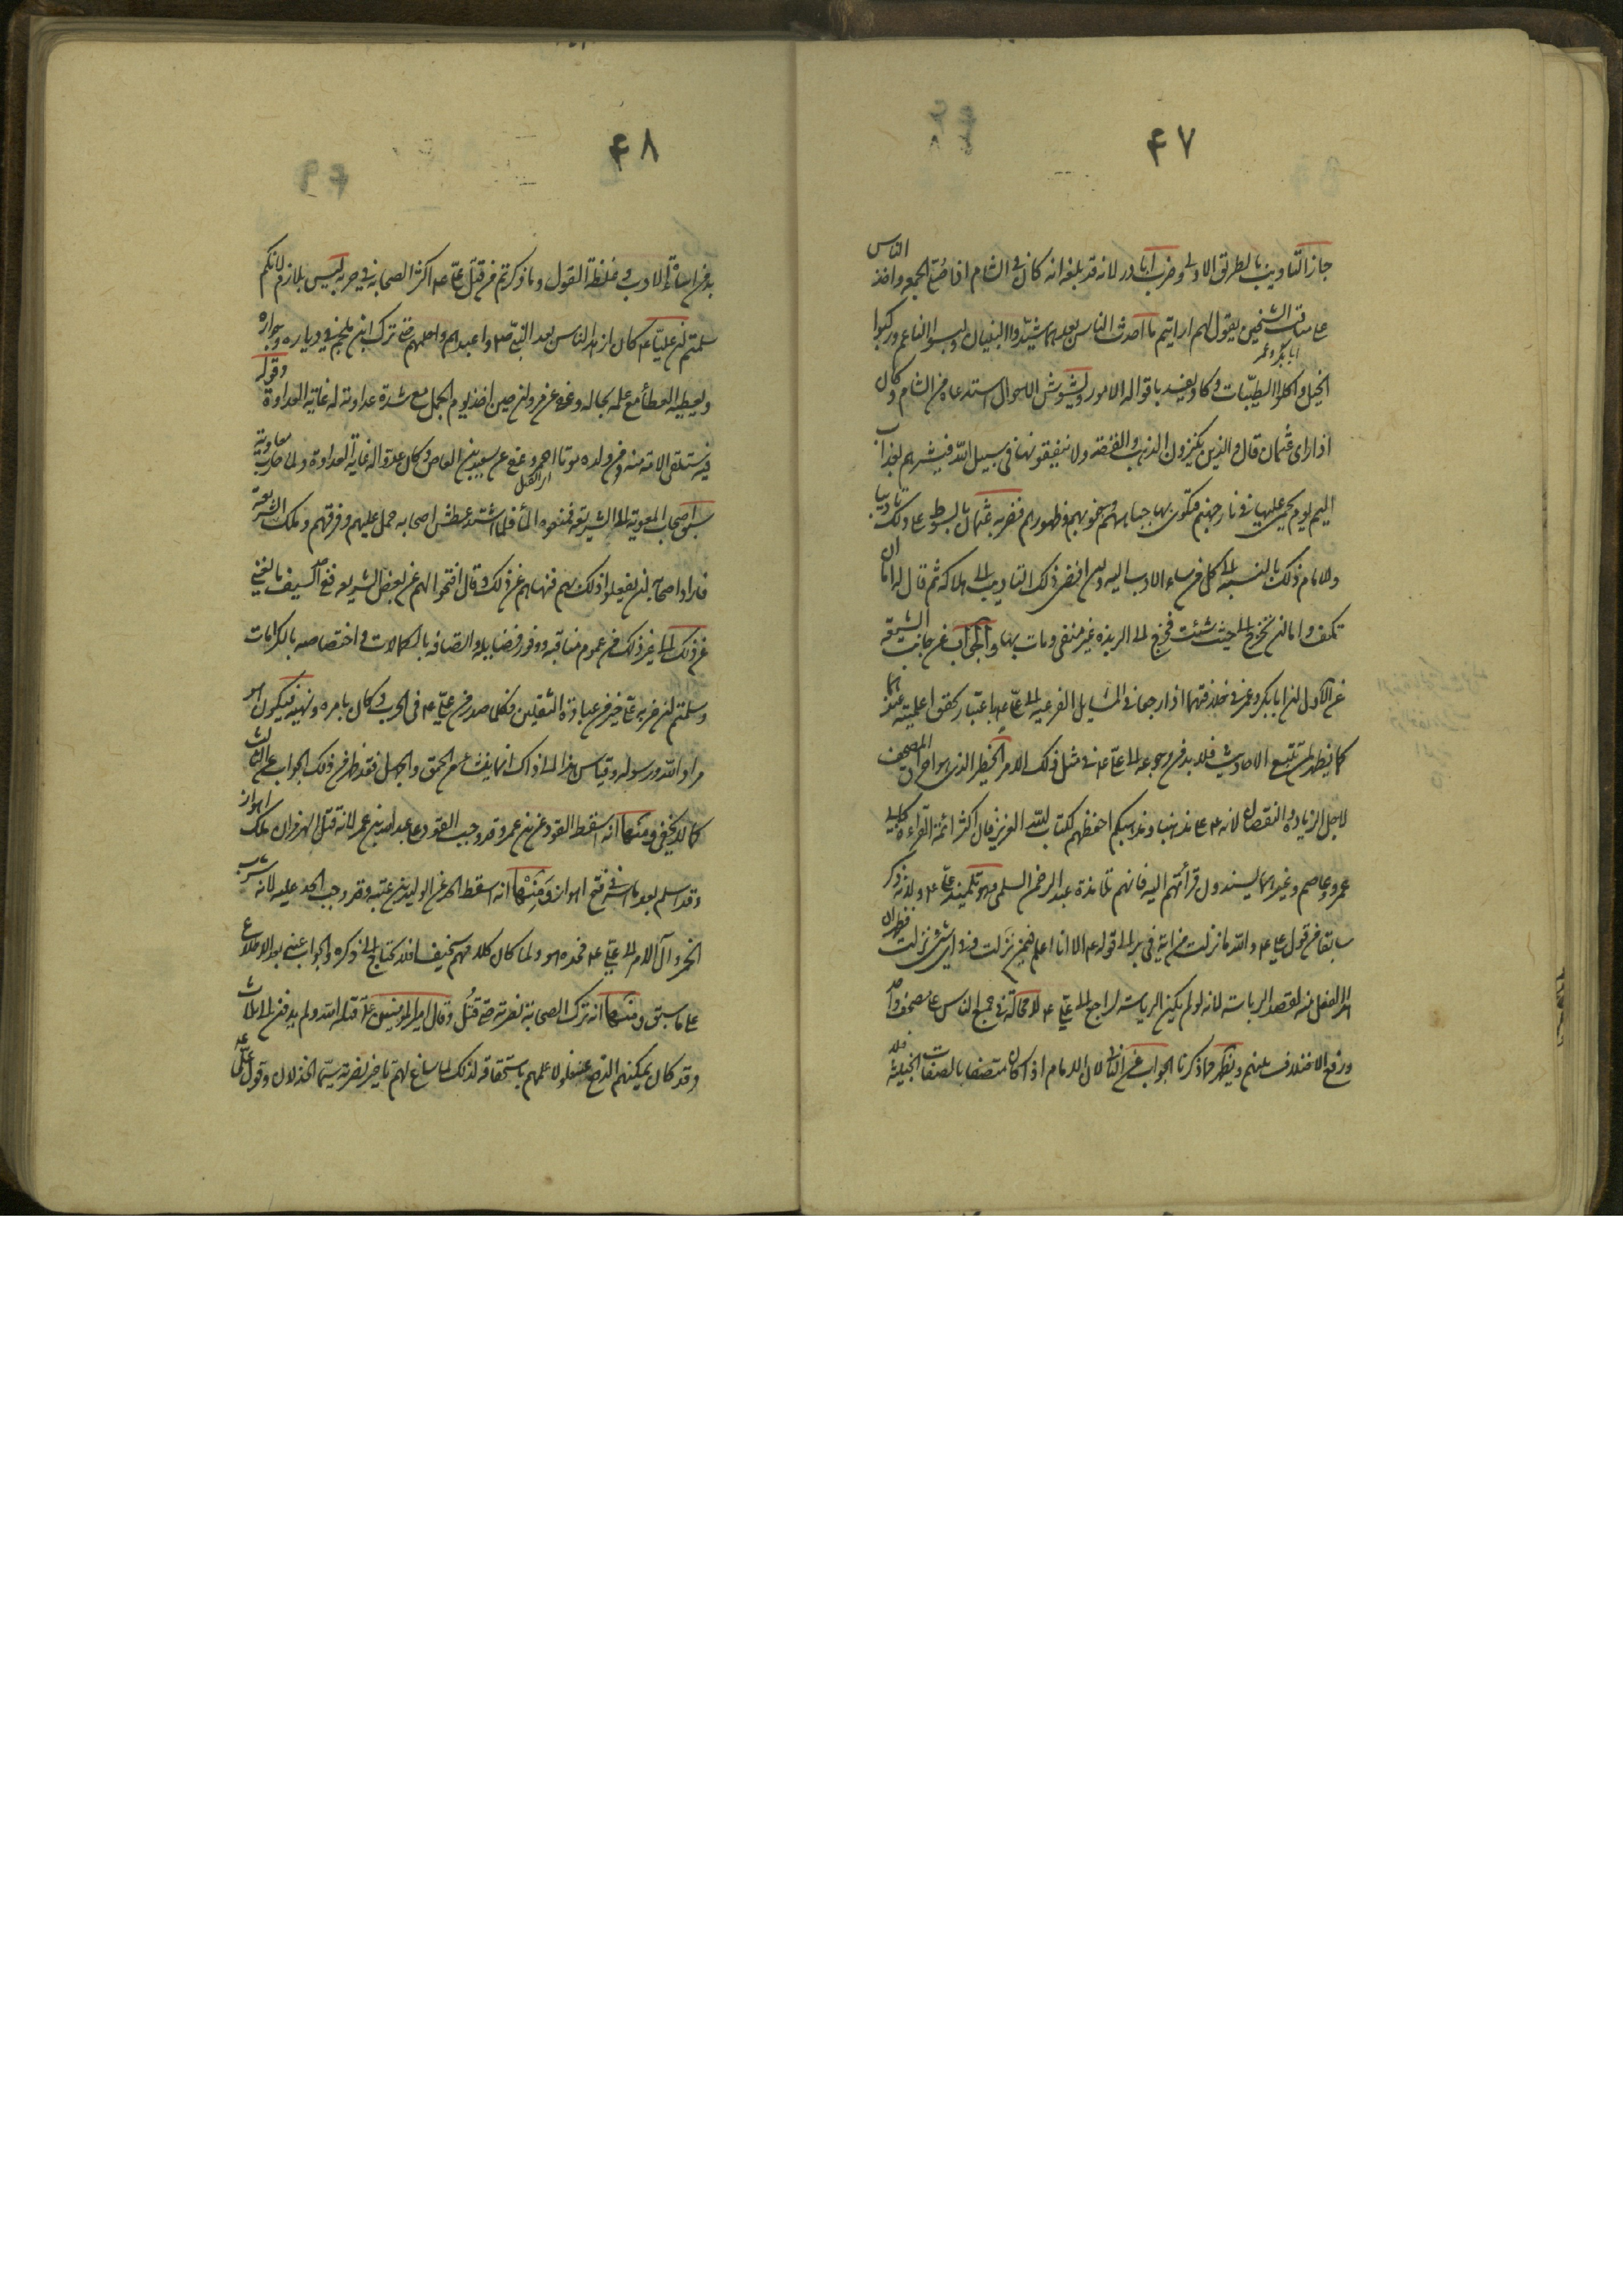 ۴۷
جاز التأديب بالطريق الاولى وضرب ابا ذر لانه قد بلغه انه كان فى الشام اذا صلى الجمعة واخذ الناس
على مناقب الشيخين يقول لهم ارايتم ما احدث الناس بعدهما شيّدوا البنيان ولبسوا الناعم وركبوا
ابا بكر وعمر
الخيل واكلوا الطيّبات وكاد يفسد باقواله الامور ويشوش الاحوال استدعاه من الشام وكان
اذا راى عثمان قال والذين يكنزون الذهب والفضة ولا ينفقونها فى سبيل الله فبشرهم بعذاب
اليم يوم يحمى عليها فى نار جهنم فتكوى بها جباههم وجنوبهم وظهورهم فضربه عثمان بالسوط على ذلك تاديبا
وللامام ذلك بالنسبة الى كل من اساء الادب اليه وان افضى ذلك التاديب الى هلاكه ثم قال له اما ان
تكف واما ان تخرج الى حيث شئت فخرج الى الربذة غير منفى ومات بها والجواب من جانب الشيعة
عن الاول ان ابا بكر وعمر فى خلافتهما اذا رجعا فى المسايل الفرعية الى على ع باعتبار تحقق اعلميته عندهما
كما يظهر لمن تتبع الاحاديث فلا بد من رجوعه الى على ع فى مثل ذلك الامر الخطير الذى هو احراق المصحف
لاجل الزيادة والنقصان لانه ع على مذهبنا ومذهبكم احفظهم لكتاب الله العزيز فان اكثر ائمة القراءة كابى
عمرو وعاصم وغيرهما يسندون قرأتهم اليه فانهم تلامذة عبد الرحمن السلمى وهو تلميذ على ع ولانه ذكر
سابقا من قول على ع والله ما نزلت من اية فى بر الى قوله ع الا انا اعلم فيمن نزلت وفى اى شئ نزلت فظهر ان
هذا الفعل منه لقصد الرياسة لانه لو لم يكن الرياسة لراجع الى على ع لا محالة فى جمع الناس على مصحف واحد
ورفع الاختلاف بينهم ويظهر مما ذكرنا الجواب عن الثانى لان الامام اذا كان متصفا بالصفات الخبيثة فلا
۴۸
بد من اساءة الادب وغلظة القول وما ذكرتم من قتل على ع اكثر الصحابة فى حربه ليس بلازم لانكم
سلمتم ان عليّا ع كان ازهد الناس بعد النبى ص واعبدهم واحلمهم حتى ترك ابن ملجم فى دياره وجواره
ويعطيه العطأ مع علمه بحاله وعفى عن مروان حين اخذ يوم الجمل مع شدة عداوته له غاية العداوة وقوله
فيه ستلقى الامة منه ومن ولده موتا احمر وعفى عن سعيد بن العاص وكان عدوا له غاية العداوة ولما حارب معاوية
اى القتل
سبق اصحاب المعوية الى الشريعة فمنعوه المأ فلما اشتد عطش اصحابه حمل عليهم وفرقهم وملك الشريعة
فاراد اصحابه ان يفعلوا ذلك بهم فنهاهم عن ذلك وقال افتحوا لهم عن بعض الشريعة ففى حد السيف ما يغنى
عن ذلك الى غير ذلك من عموم مناقبه ووفور فضايله واتصافه بالكمالات واختصاصه بالكرامات
وسلمتم ان ضربة على خير من عبادة الثقلين فكلما صدر من على ع فى الحرب كان بامره ونهيه فيكون هو
مراد الله ورسوله وقياس هذا الى ذاك انما ينشأ من الحمق والجهل فقد ظهر من ذلك الجواب عن الثالث
كما لا يخفى ومنها انه اسقط القود عن ابن عمر وقد وجب القود على عبد الله بن عمر لانه قتل الهرمزان ملك اهواز
وقد اسلم بعد ما اسر فى فتح اهواز ومنها انه اسقط الحد عن الوليد بن عتبه وقد وجب الحد عليه لانه شرب
الخمر وآل الامر الى على ع فحده هو ولما كان كلامهم سخيفا فلا يحتاج الى ذكره والجواب عنه بعد الاطلاع
على ما سبق ومنها انه ترك الصحابة نصرته حتى قُتل وقال امير المومنين على قتله الله ولم يدفن الى ثلاث
وقد كان يمكنهم الدفع عنه فلولا علمهم باستحقاقه لذلك لما ساغ لهم تاخير نصرته سيّما الخذلان وقول على ع